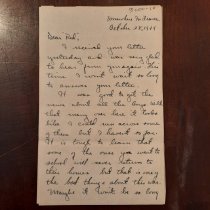 Somewhere In France
October 28, 1944
Dear Red,
I received your letter
yesterday and was very glad
to hear from you again. This
time I won't wait so long
to answer your letter.
It was good to get the
news about all the boys. With
that many over here it looks
like I could run across some
of them but I haven't so far.
It is tough to learn that
some of the ones you went to
school will never return to
their homes but that is one of
the bad things about this war.
Maybe it won't be so long